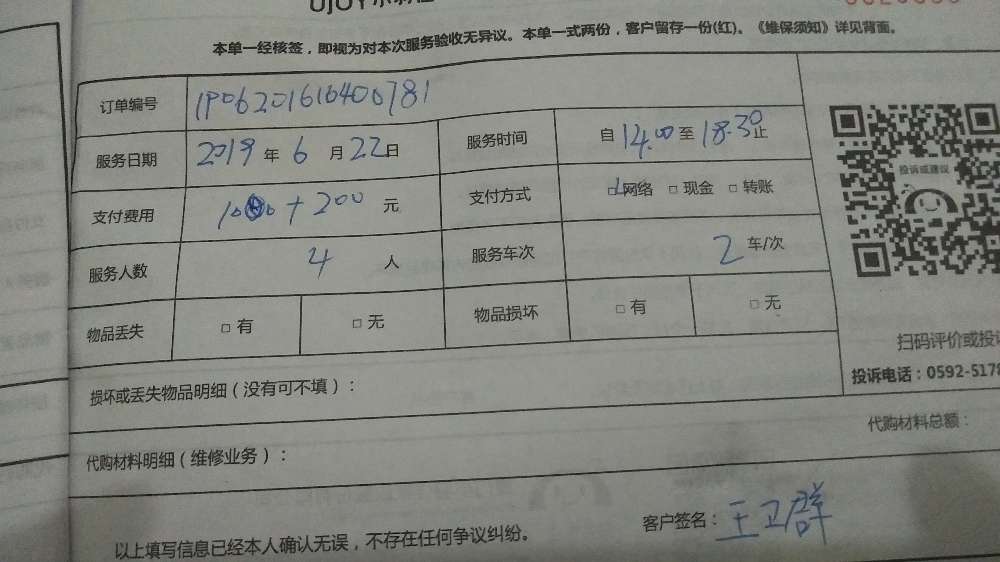 UJOY
本单一经核签，即视为对本次服务验收无异议。本单一式两份，客户留存一份(红)。《维保须知》详见背面。
订单编号 1906201616400781
服务日期 2019 年 6 月 22 日 服务时间 自 14.00 至 18.30 止
支付费用 1000 + 200 元 支付方式 □ 网络 □ 现金 □ 转账
服务人数 4 人 服务车次 2 车/次
物品丢失 □ 有 □ 无 物品损坏 □ 有 □ 无
投诉或建议
扫码评价或投诉
投诉电话：0592-5178
损坏或丢失物品明细（没有可不填）：
代购材料明细（维修业务）： 代购材料总额：
以上填写信息已经本人确认无误，不存在任何争议纠纷。 客户签名：王卫群